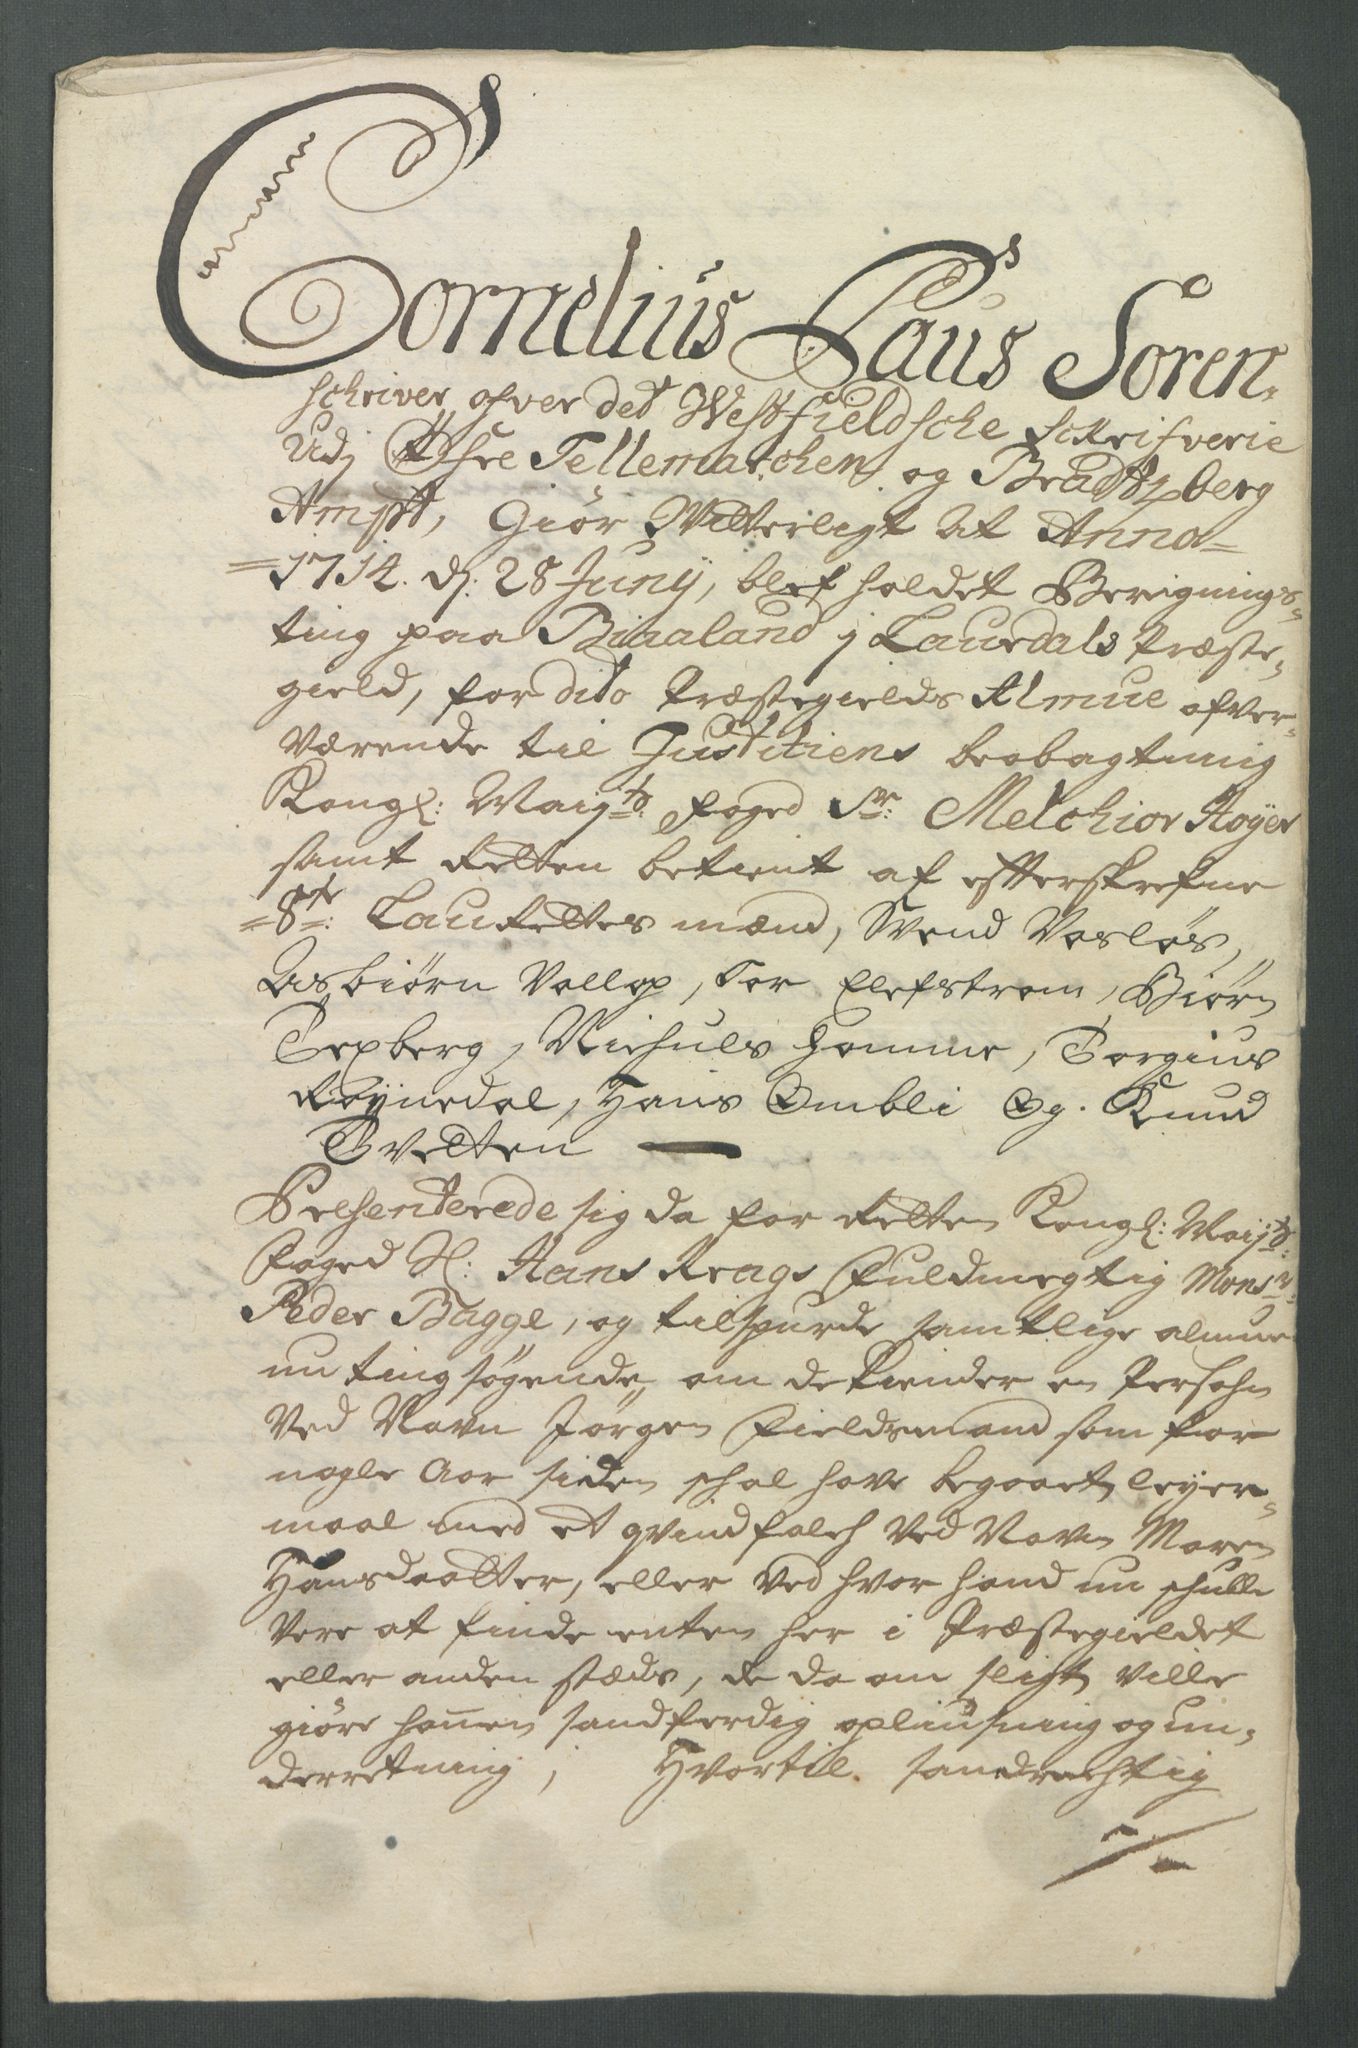 Cornelius Laus Soren-
schriver ofver det Westfieldsche schrifverie
Udj Øfre Tellemarchen og Bradtzberg
Ampt, Giør Witterligt at Anno
1714. d. 28 Junij, blef holdet Berignings-
ting paa Biaaland j Laurdals Præste-
gield, for dito Præstegields Almue ofver-
værende til Justitiens beobagtning
Kongl: Maij:ts foged Sr: Melchior Høyer
samt Retten betient af effterskrefne
8te: Laurettes mænd, Svend Vasløs,
Asbiørn Vallop, Tor Elefstrom, Biørn
Texberg, Niehuls Homme, Torgius
Røynedal, Hans Ombli Og. Knud
Tvetten
Præsenterede sig da for Retten Kongl: Maij:ts
foged Sl: Hans Krags Fuldmegtig Monsr:
Peder Bagge, og tilspurde samtlige almue
nu tingsøgende, om de kiender en Persohn
ved Navn Jørgen Fieldmand som for
nogle Aar siden schal have begaaet leyer-
maal med et qvindfolch ved Navn Maren
Hansdaatter, eller ved hvor hand nu schulle
vere at finde enten her i Præstegieldet
eller anden stæds, de da om sligt ville
giøre hannem sandferdig opliusning og un-
derretning, Hvortil sandrechtig